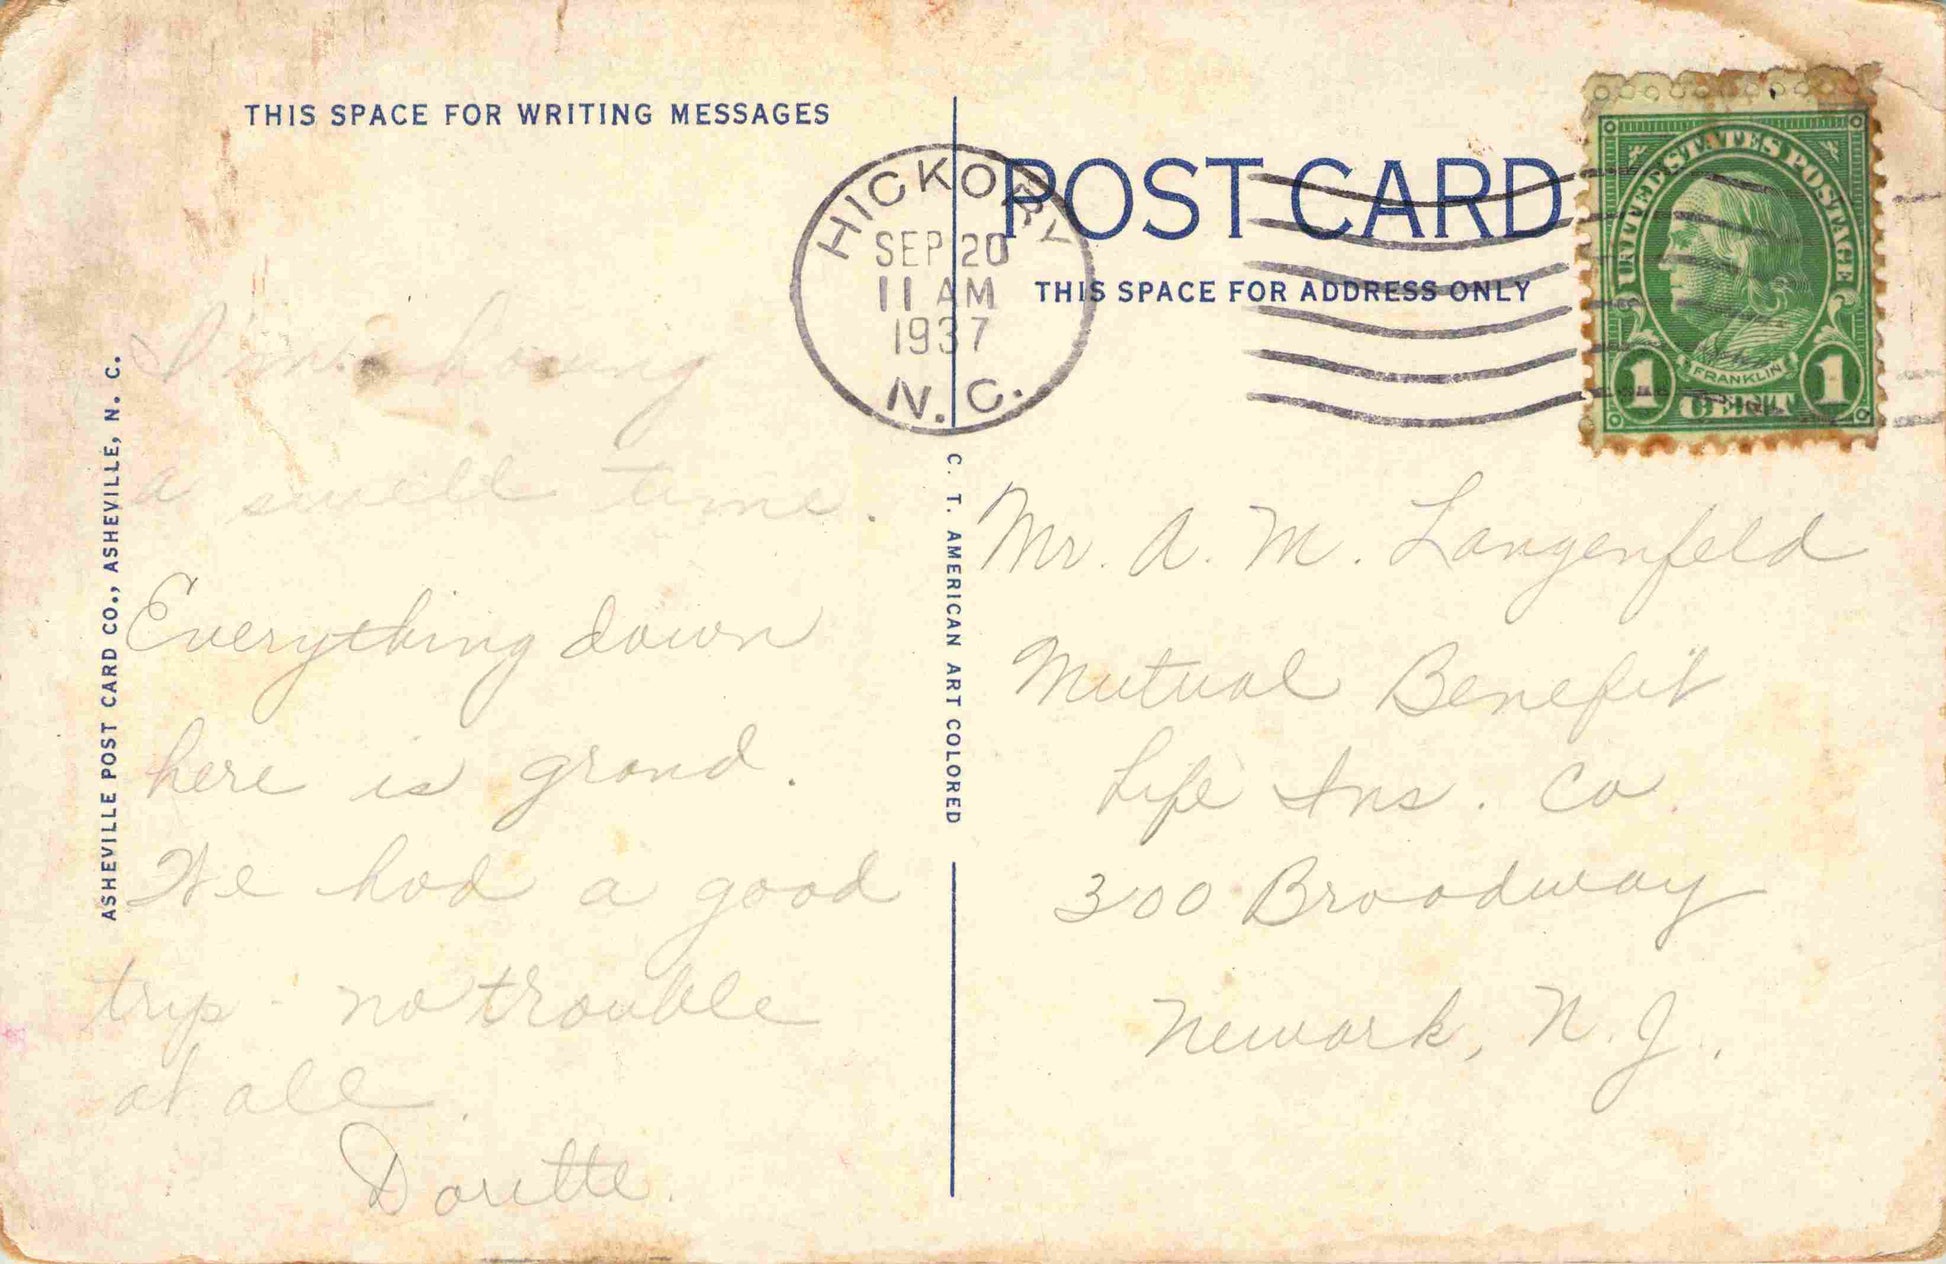 THIS SPACE FOR WRITING MESSAGES
I'm having
a swell time.
Everything down
here is grand.
We had a good
trip - no trouble
at all.
Dorette.
ASHEVILLE POST CARD CO., ASHEVILLE, N. C.
C. T. AMERICAN ART COLORED
HICKORY
SEP 20
11 AM
1937
N. C.
POST CARD
THIS SPACE FOR ADDRESS ONLY
UNITED STATES POSTAGE
FRANKLIN
1 CENT 1
Mr. A. M. Langenfeld
Mutual Benefit
Life Ins. Co.
300 Broadway
Newark, N. J.